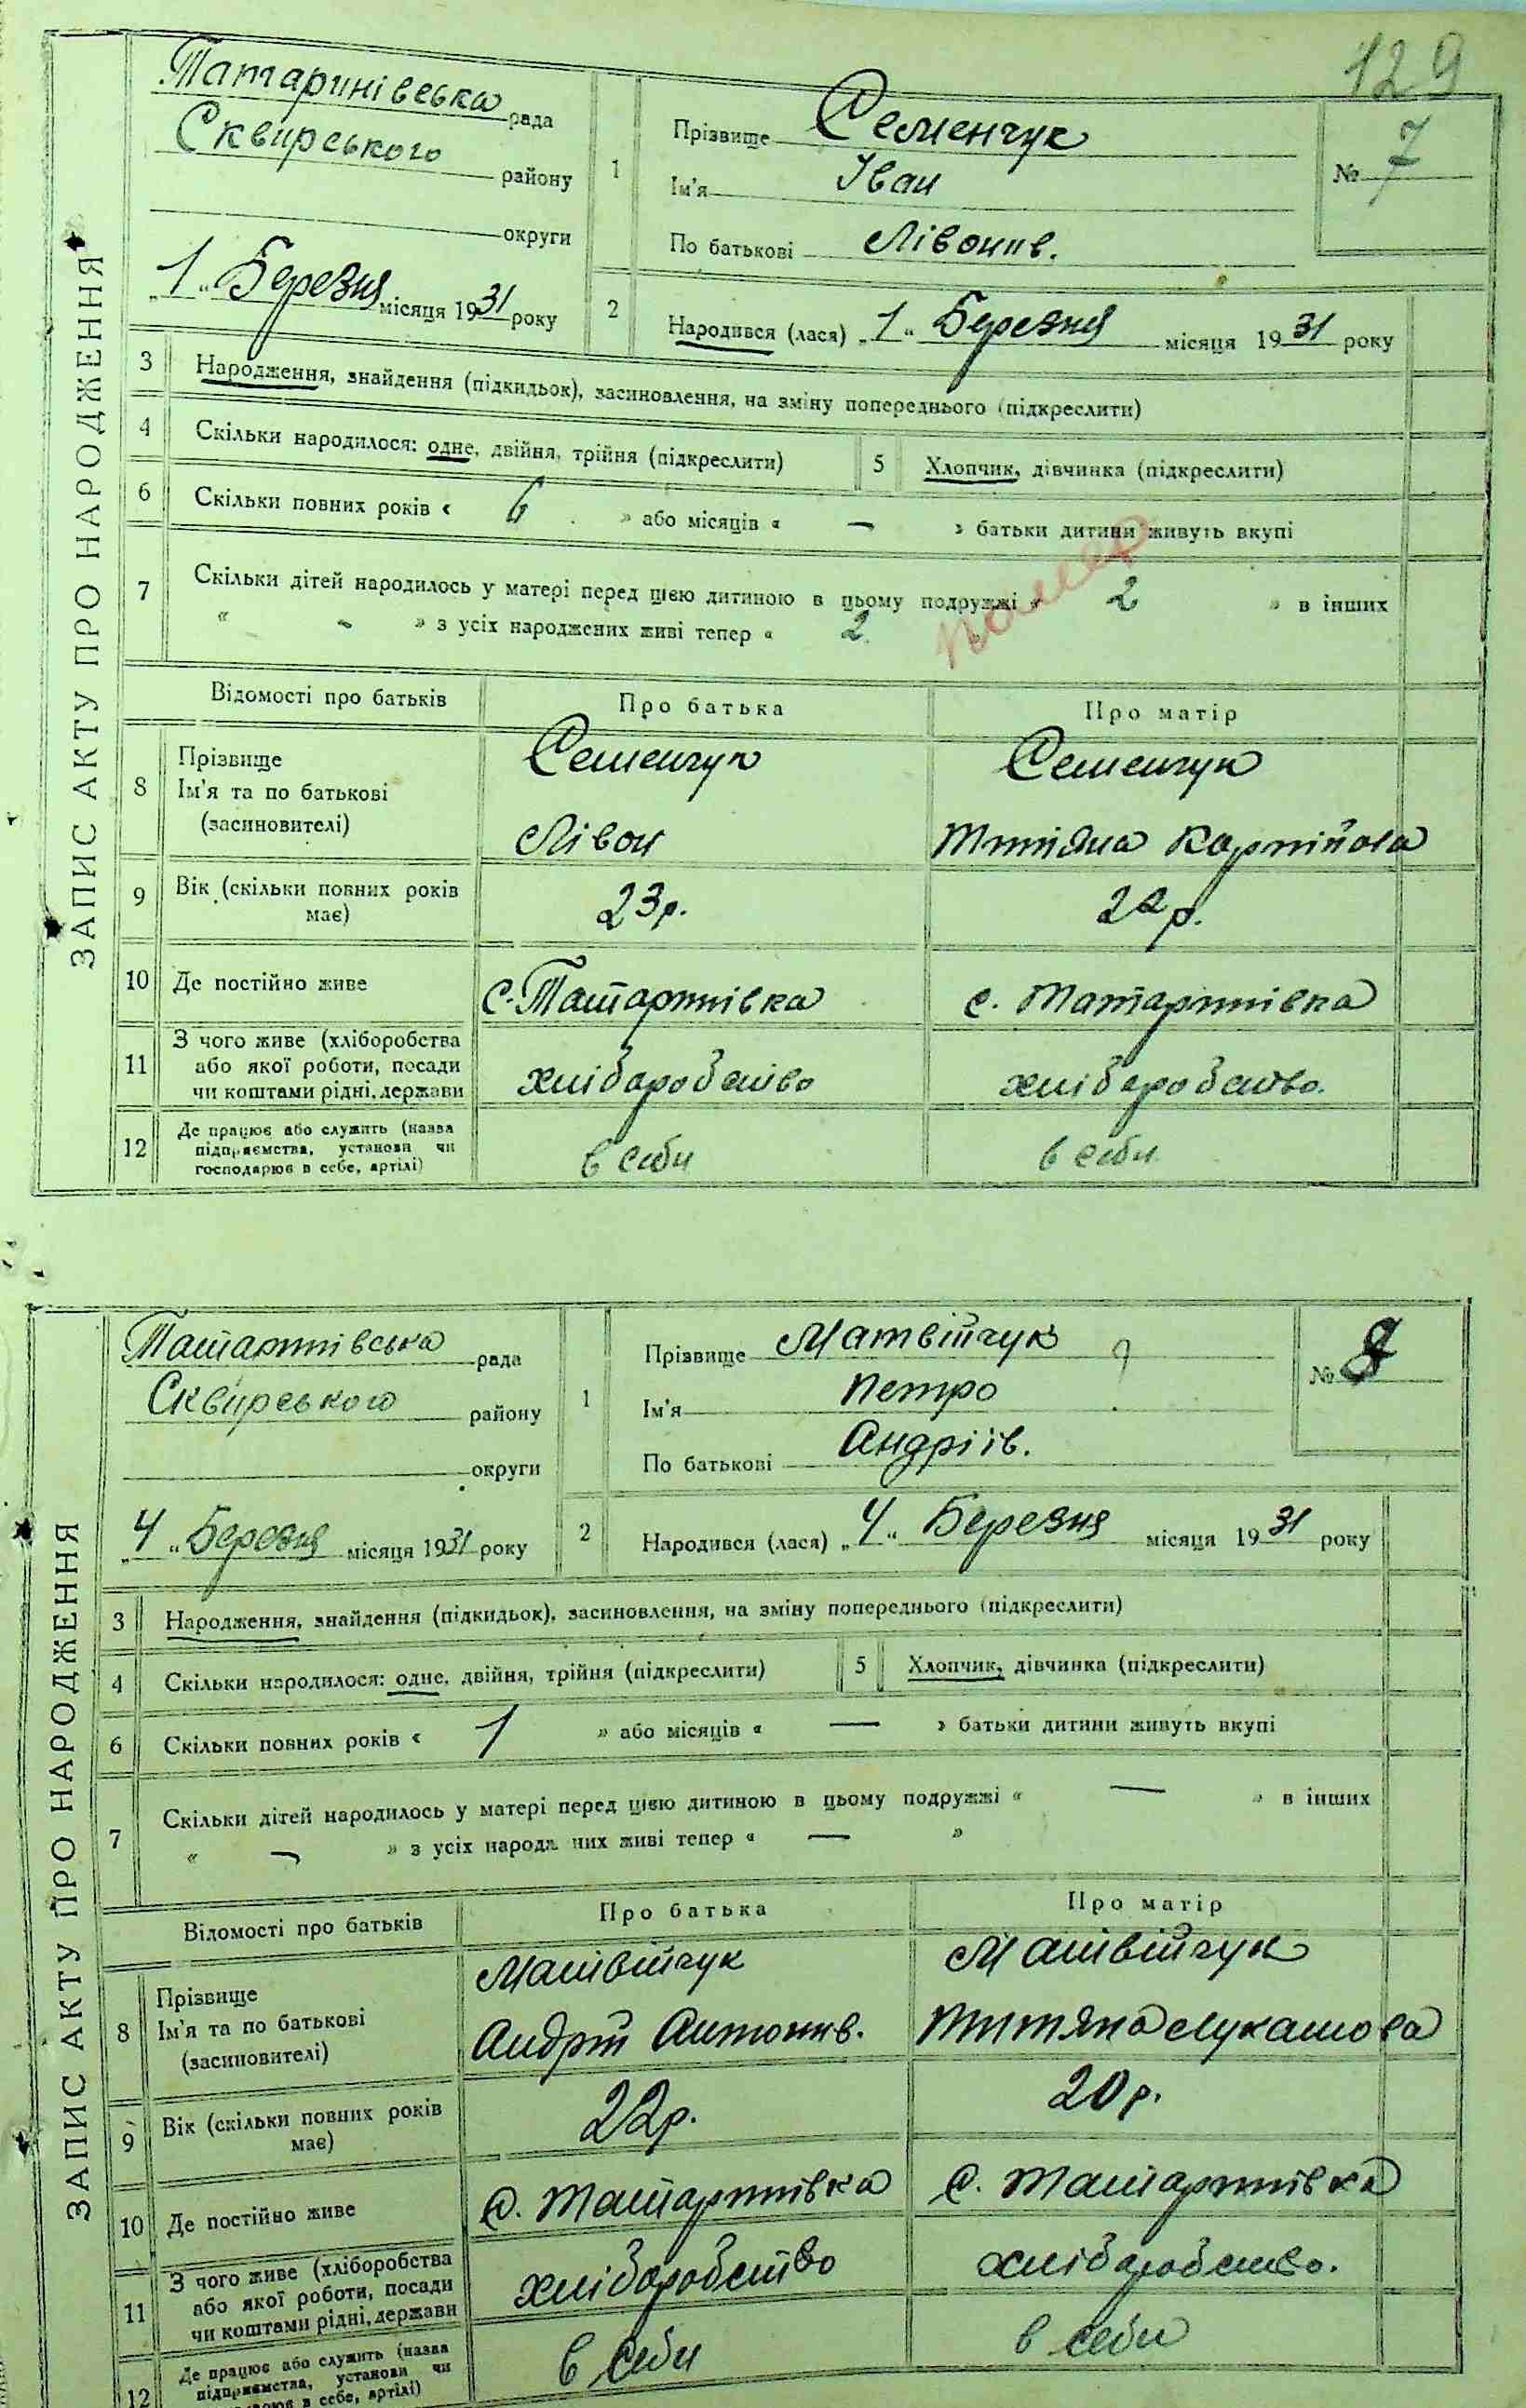 129
ЗАПИС АКТУ ПРО НАРОДЖЕННЯ
Татаринівська рада
Сквирського району
округи
„1“ Березня місяця 1931 року
1 Прізвище Семенчук
Ім'я Іван
По батькові Лівонив.
№ 7
2 Народився (лася) „1“ Березня місяця 1931 року
3 Народження, знайдення (підкидьок), засиновлення, на зміну попереднього (підкреслити)
4 Скільки народилося: одне, двійня, трійня (підкреслити) 5 Хлопчик, дівчинка (підкреслити)
6 Скільки повних років « 6 » або місяців « — » батьки дитини живуть вкупі
помер
7 Скільки дітей народилось у матері перед цією дитиною в цьому подружжі « 2 » в інших
« - » з усіх народжених живі тепер « 2 »
Відомості про батьків Про батька Про матір
8 Прізвище Семенчук Семенчук
Ім'я та по батькові
(засиновителі) Лівон Титяна Карпійова
9 Вік (скільки повних років має) 23р. 22р.
10 Де постійно живе с. Татаринівка с. Татаринівка
11 З чого живе (хліборобства
або якої роботи, посади
чи коштами рідні, держави хліборобство хліборобство.
12 Де працює або служить (назва
підприємства, установи чи
господарює в себе, артілі) в себи в себи
ЗАПИС АКТУ ПРО НАРОДЖЕННЯ
Татаринівська рада
Сквирського району
округи
„4“ Березня місяця 1931 року
1 Прізвище Матвійчук
Ім'я Петро
По батькові Андріїв.
№ 8
2 Народився (лася) „4“ Березня місяця 1931 року
3 Народження, знайдення (підкидьок), засиновлення, на зміну попереднього (підкреслити)
4 Скільки народилося: одне, двійня, трійня (підкреслити) 5 Хлопчик, дівчинка (підкреслити)
6 Скільки повних років « 1 » або місяців « — » батьки дитини живуть вкупі
7 Скільки дітей народилось у матері перед цією дитиною в цьому подружжі « — » в інших
« — » з усіх народж них живі тепер « — »
Відомості про батьків Про батька Про матір
8 Прізвище Матвійчук Матвійчук
Ім'я та по батькові
(засиновителі) Андрій Антонив. Титяна Лукашова
9 Вік (скільки повних років має) 22р. 20р.
10 Де постійно живе с. Татаринівка с. Татаринівка
11 З чого живе (хліборобства
або якої роботи, посади
чи коштами рідні, держави хліборобство хліборобство.
12 Де працює або служить (назва
підприємства, установи чи
в себе, артілі) в себи в себи